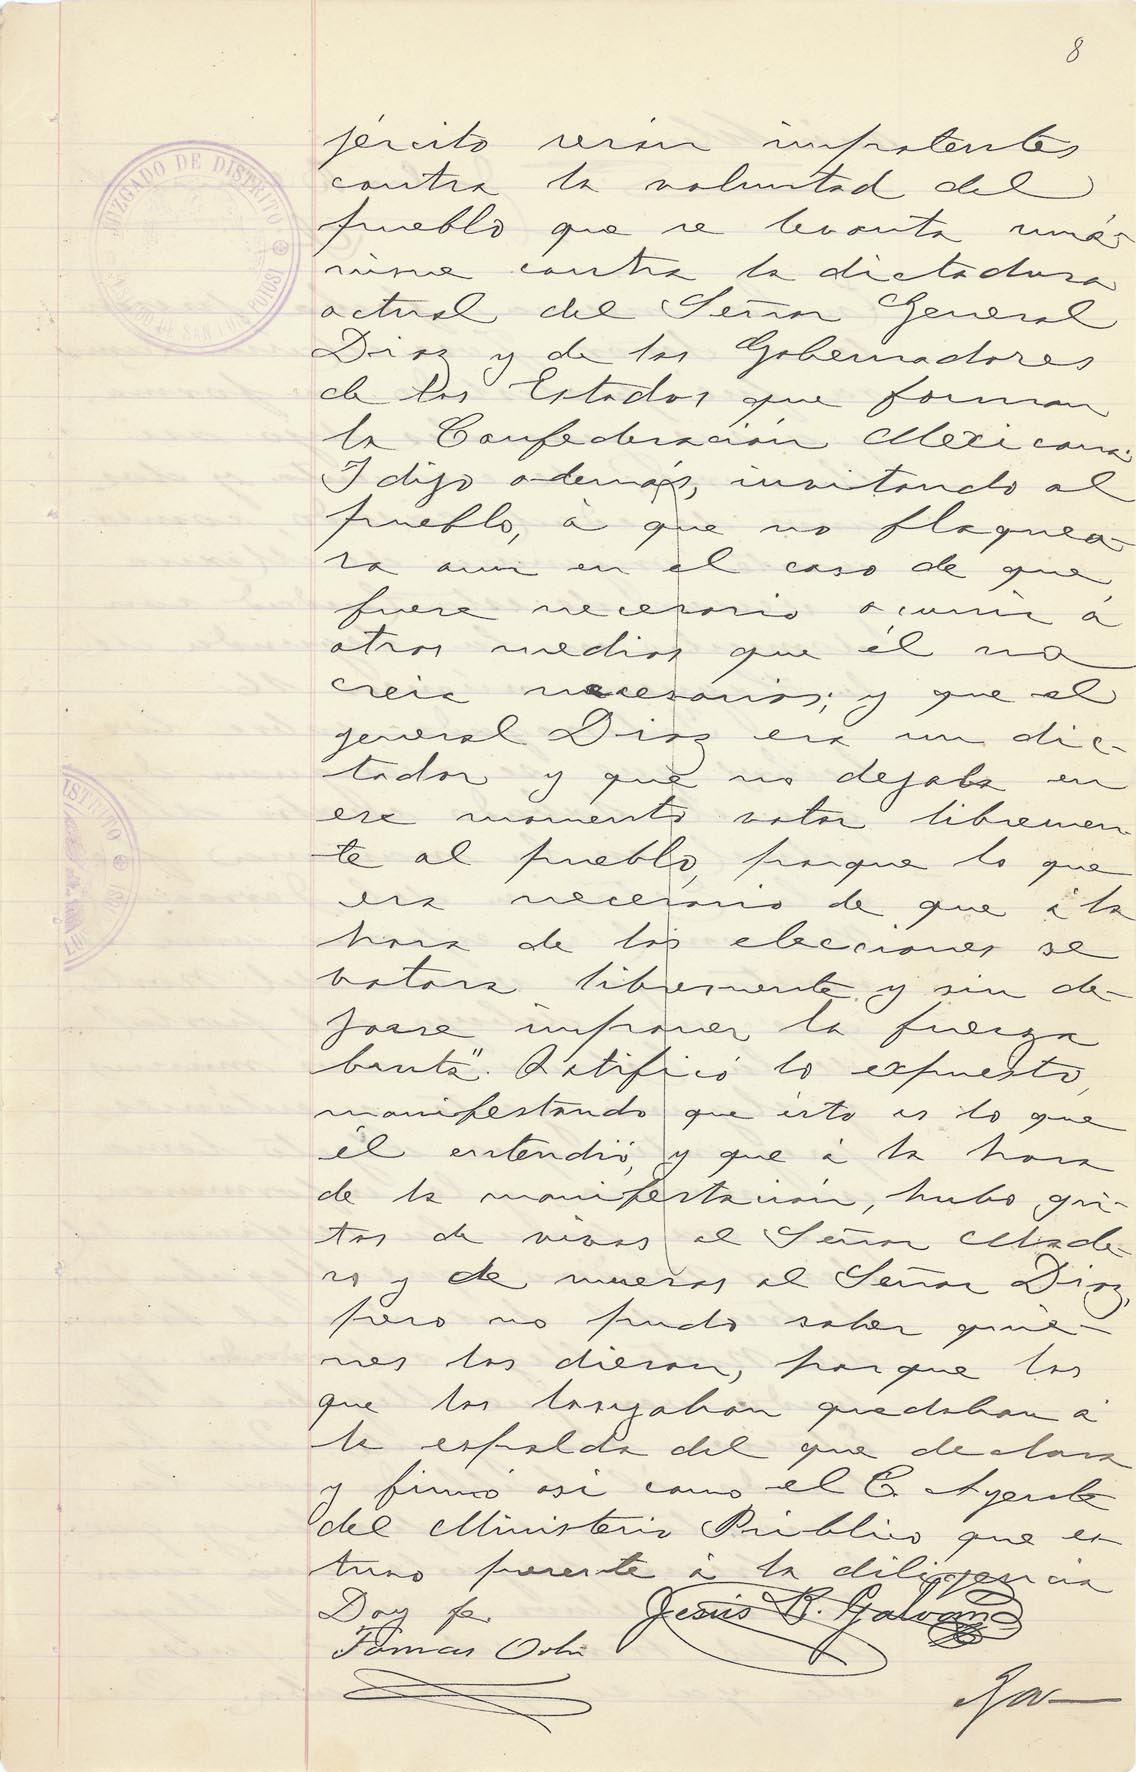 8
JUZGADO DE DISTRITO
ESTADO DE SAN LUIS POTOSI
jército serán impotentes
contra la voluntad del
pueblo que se levanta uná-
nime contra la dictadura
actual del Señor General
Diaz y de los Gobernadores
de los Estados que forman
la Confederación Mexicana.
I dijo además, invitando al
pueblo, á que no flaquea-
ra aun en el caso de que
fuere necesario ocurrir á
otros medios que él no
creia necesarios; y que el
general Diaz era un dic-
tador y que no dejaba en
ese momento votar libremen-
te al pueblo, porque lo que
era necesario de que á la
hora de las elecciones se
votara libremente y sin de-
jarse imponer la fuerza
bruta". Ratificó lo expuesto,
manifestando que ésto es lo que
él entendió, y que á la hora
de la manifestación, hubo gri-
tos de vivas al Señor Made-
ro y de mueras al Señor Diaz,
pero no pudo saber quié-
nes los dieron, porque los
que los lanzaban quedaban á
la espalda del que declara
y firmó asi como el C. Agente
del Ministerio Público que es-
tuvo presente á la diligencia
Doy fe.
Jesús R. Galván
Tomas Orti
ISTRITO